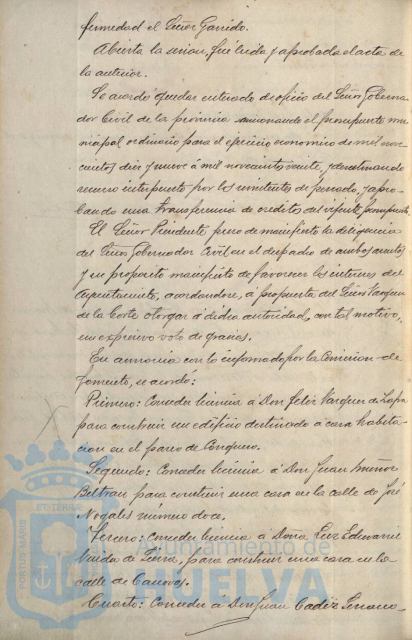 fermedad el Señor Garrido.
Abierta la sesion, fué leida y aprobada el acta de
la anterior.
Se acordó quedar enterado de oficio del Señor Goberna-
dor Civil de la provincia sancionando el presupuesto mu-
nicipal ordinario para el ejercicio economico de mil nove-
cientos diez y nueve á mil novecientos veinte, y desestimando
recurso interpuesto por los tratantes de ganado, y apro-
bando una transferencia de creditos del vigente presupuesto.
El Señor Presidente puso de manifiesto la deligencia
del Señor Gobernador Civil en el despacho de ambos asuntos
y su proposito manifiesto de favorecer los intereses del
Ayuntamiento, acordandose, á propuesta del Señor Vazquez
de la Corte otorgar á dicha autoridad, con tal motivo,
un expresivo voto de gracias.
En armonia con lo informado por la Comision de
Fomento, se acordó:
Primero: Conceder licencia á Don Felix Vazquez de Zafra
para construir un edificio destinado á casa habita-
cion en el paseo de Conquero.
Segundo: Conceder licencia á Don Juan Muñoz
Beltran para construir una casa en la calle de José
Nogales número doce.
Tercero: Conceder licencia á Doña Luz
Viuda de para construir una casa en la
calle de Canovas.
Cuarto: Conceder á Don Juan Cadiz Serrano
PORTUS MARIS
ET TERRAE
Ayuntamiento de
HUELVA